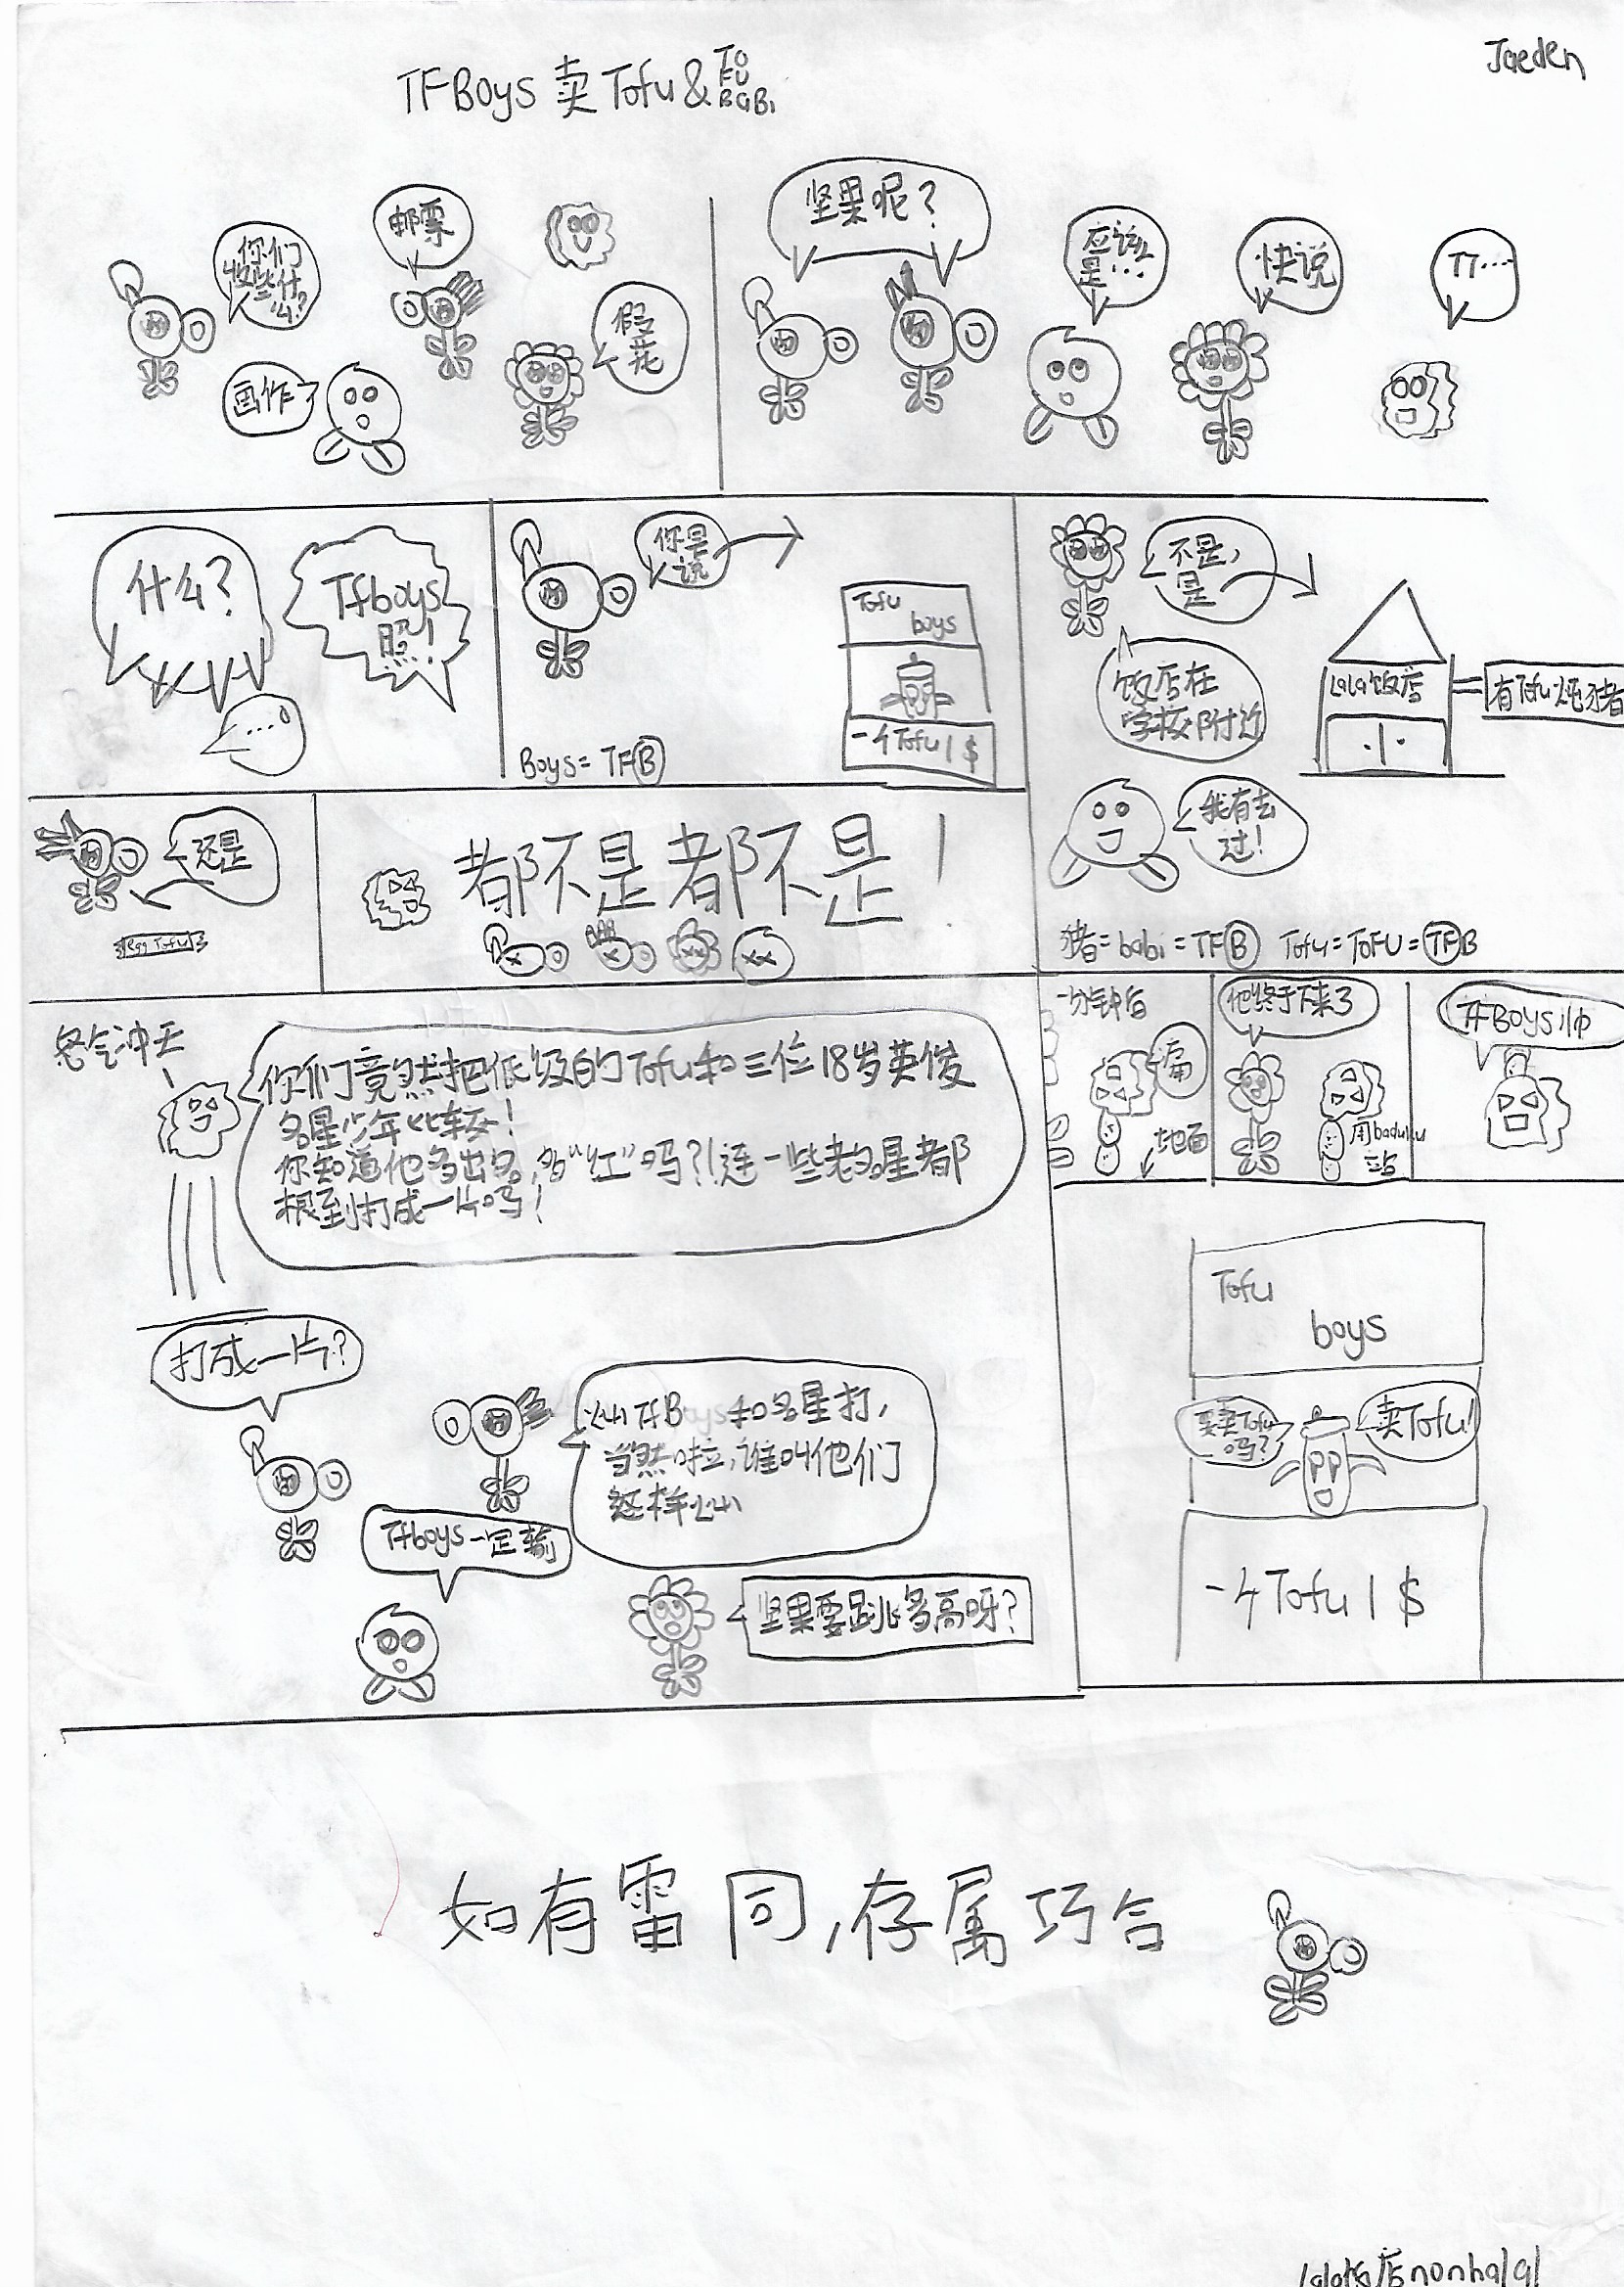 Jaeden
TFBoys 卖 Tofu &
TO
FU
BaBi
你们
收些什
么?
邮票
画作
假
花
坚果呢?
应该
是…
快说
TT…
什么?
Tfboys
照!
…
你是
说
Tofu
boys
-4 Tofu 1 $
Boys = TFB
不是,
是
饭店在
学校附近
Lala饭店
=
有Tofu
我有去
过!
猪 = babi = TFB Tofu = TOFU = TFB
还是
egg Tofu
都不是都不是!
怒气冲天
你们竟然把低级的Tofu和三位18岁英俊
名星少年比较!
你知道他多出名,多"红"吗?!连一些老名星都
根到打成一片吗!
打成一片?
火山TFBoys和名星打,
当然啦,谁叫他们
这样火山
Tfboys一定输
坚果要跳多高呀?
一分钟后
扁
地面
他终于下来了
用baduku
站
TFBoys帅
Tofu
boys
要卖Tofu
吗?
卖Tofu!
-4 Tofu 1 $
如有雷同,存属巧合
lala饭店nonhalal